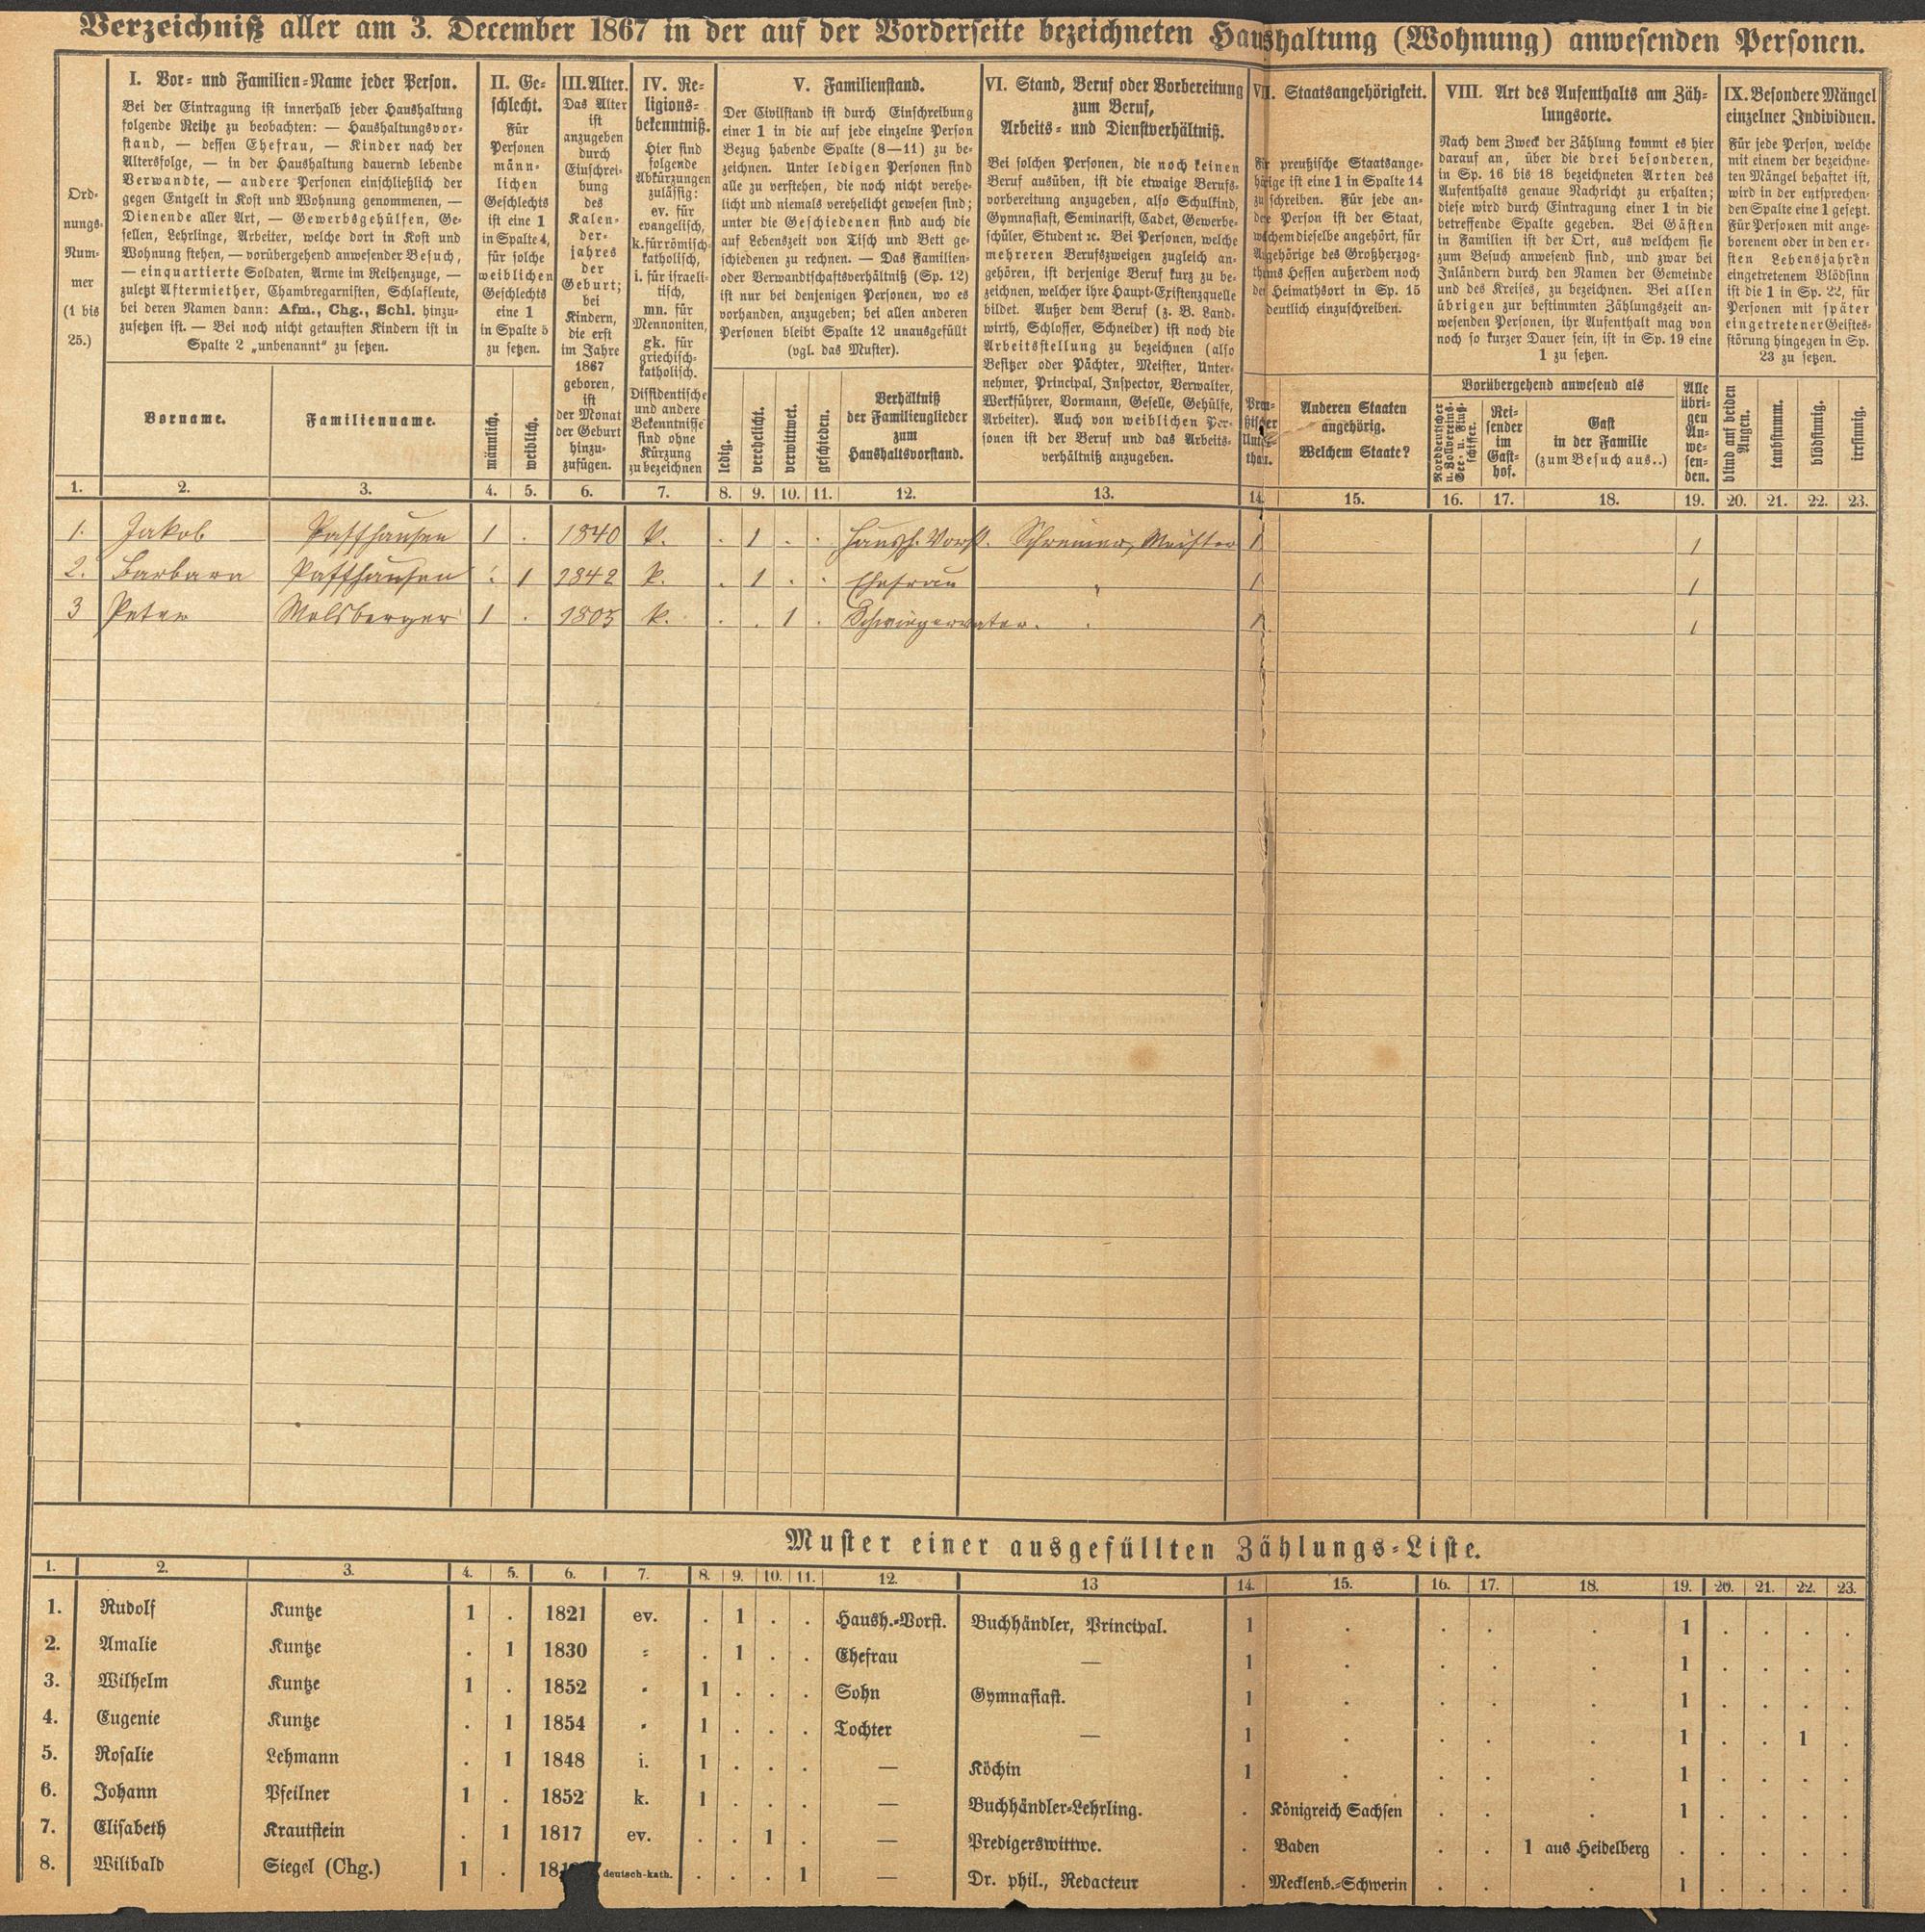 Verzeichniß aller am 3. December 1867 in der auf der Vorderseite bezeichneten Haushaltung (Wohnung) anwesenden Personen.
Ord-
nungs-
Num-
mer
(1 bis
25.)
I. Vor- und Familien-Name jeder Person.
Bei der Eintragung ist innerhalb jeder Haushaltung
folgende Reihe zu beobachten: — Haushaltungsvor-
stand, — dessen Ehefrau, — Kinder nach der
Altersfolge, — in der Haushaltung dauernd lebende
Verwandte, — andere Personen einschließlich der
gegen Entgelt in Kost und Wohnung genommenen, —
Dienende aller Art, — Gewerbsgehülfen, Ge-
sellen, Lehrlinge, Arbeiter, welche dort in Kost und
Wohnung stehen, — vorübergehend anwesender Besuch,
— einquartierte Soldaten, Arme im Reihenzuge, —
zuletzt Aftermiether, Chambregarnisten, Schlafleute,
bei deren Namen dann: Afm., Chg., Schl. hinzu-
zusetzen ist. — Bei noch nicht getauften Kindern ist in
Spalte 2 „unbenannt“ zu setzen.
Vorname.
Familienname.
II. Ge-
schlecht.
Für
Personen
männ-
lichen
Geschlechts
ist eine 1
in Spalte 4,
für solche
weiblichen
Geschlechts
eine 1
in Spalte 5
zu setzen.
männlich.
weiblich.
III. Alter.
Das Alter
ist
anzugeben
durch
Einschrei-
bung
des
Kalen-
der-
jahres
der
Geburt;
bei
Kindern,
die erst
im Jahre
1867
geboren,
ist
der Monat
der Geburt
hinzu-
zufügen.
IV. Re-
ligions-
bekenntniß.
Hier sind
folgende
Abkürzungen
zulässig:
ev. für
evangelisch,
k. für römisch-
katholisch,
i. für israeli-
tisch,
mn. für
Mennoniten,
gk. für
griechisch-
katholisch.
Dissidentische
und andere
Bekenntnisse
sind ohne
Kürzung
zu bezeichnen
V. Familienstand.
Der Civilstand ist durch Einschreibung
einer 1 in die auf jede einzelne Person
Bezug habende Spalte (8—11) zu be-
zeichnen. Unter ledigen Personen sind
alle zu verstehen, die noch nicht verehe-
licht und niemals verehelicht gewesen sind;
unter die Geschiedenen sind auch die
auf Lebenszeit von Tisch und Bett ge-
schiedenen zu rechnen. — Das Familien-
oder Verwandtschaftsverhältniß (Sp. 12)
ist nur bei denjenigen Personen, wo es
vorhanden, anzugeben; bei allen anderen
Personen bleibt Spalte 12 unausgefüllt
(vgl. das Muster).
ledig.
verehelicht.
verwittwet.
geschieden.
Verhältniß
der Familienglieder
zum
Haushaltsvorstand.
VI. Stand, Beruf oder Vorbereitung
zum Beruf,
Arbeits- und Dienstverhältniß.
Bei solchen Personen, die noch keinen
Beruf ausüben, ist die etwaige Berufs-
vorbereitung anzugeben, also Schulkind,
Gymnasiast, Seminarist, Cadet, Gewerbe-
schüler, Student ꝛc. Bei Personen, welche
mehreren Berufszweigen zugleich an-
gehören, ist derjenige Beruf kurz zu be-
zeichnen, welcher ihre Haupt-Existenzquelle
bildet. Außer dem Beruf (z. B. Land-
wirth, Schlosser, Schneider) ist noch die
Arbeitsstellung zu bezeichnen (also
Besitzer oder Pächter, Meister, Unter-
nehmer, Principal, Inspector, Verwalter,
Werkführer, Vormann, Geselle, Gehülfe,
Arbeiter). Auch von weiblichen Per-
sonen ist der Beruf und das Arbeits-
verhältniß anzugeben.
VII. Staatsangehörigkeit.
Für preußische Staatsange-
hörige ist eine 1 in Spalte 14
zu schreiben. Für jede an-
dere Person ist der Staat,
welchem dieselbe angehört, für
Angehörige des Großherzog-
thums Hessen außerdem noch
der Heimathsort in Sp. 15
deutlich einzuschreiben.
Preu-
ßischer
Unter-
than.
Anderen Staaten
angehörig.
Welchem Staate?
VIII. Art des Aufenthalts am Zäh-
lungsorte.
Nach dem Zweck der Zählung kommt es hier
darauf an, über die drei besonderen,
in Sp. 16 bis 18 bezeichneten Arten des
Aufenthalts genaue Nachricht zu erhalten;
diese wird durch Eintragung einer 1 in die
betreffende Spalte gegeben. Bei Gästen
in Familien ist der Ort, aus welchem sie
zum Besuch anwesend sind, und zwar bei
Inländern durch den Namen der Gemeinde
und des Kreises, zu bezeichnen. Bei allen
übrigen zur bestimmten Zählungszeit an-
wesenden Personen, ihr Aufenthalt mag von
noch so kurzer Dauer sein, ist in Sp. 19 eine
1 zu setzen.
Vorübergehend anwesend als
Norddeutscher
u. Zollvereins-
See- u. Fluß-
schiffer.
Rei-
sender
im
Gast-
hof.
Gast
in der Familie
(zum Besuch aus..)
Alle
übri-
gen
An-
we-
sen-
den.
IX. Besondere Mängel
einzelner Individuen.
Für jede Person, welche
mit einem der bezeichne-
ten Mängel behaftet ist,
wird in der entsprechen-
den Spalte eine 1 gesetzt.
Für Personen mit ange-
borenem oder in den er-
sten Lebensjahren
eingetretenem Blödsinn
ist die 1 in Sp. 22, für
Personen mit später
eingetretener Geistes-
störung hingegen in Sp.
23 zu setzen.
blind auf beiden
Augen.
taubstumm.
blödsinnig.
irrsinnig.
1. 2. 3. 4. 5. 6. 7. 8. 9. 10. 11. 12. 13. 14. 15. 16. 17. 18. 19. 20. 21. 22. 23.
1. Jakob Paffhausen 1 . 1840 k. . 1 . . Haush. Vorst. Schreiner, Meister 1 1
2. Barbara Paffhausen . 1 1842 k. . 1 . . Ehefrau 1 1
3 Peter Molsberger 1 . 1805 k. . . 1 . Schwiegervater. . 1 1
Muster einer ausgefüllten Zählungs-Liste.
1. 2. 3. 4. 5. 6. 7. 8. 9. 10. 11. 12. 13 14. 15. 16. 17. 18. 19. 20. 21. 22. 23.
1. Rudolf Kuntze 1 . 1821 ev. . 1 . . Haush.-Vorst. Buchhändler, Principal. 1 . . . . 1 . . . .
2. Amalie Kuntze . 1 1830 " . 1 . . Ehefrau — 1 . . . . 1 . . . .
3. Wilhelm Kuntze 1 . 1852 " 1 . . . Sohn Gymnasiast. 1 . . . . 1 . . . .
4. Eugenie Kuntze . 1 1854 " 1 . . . Tochter — 1 . . . . 1 . . 1 .
5. Rosalie Lehmann . 1 1848 i. 1 . . . — Köchin 1 . . . . 1 . . . .
6. Johann Pfeilner 1 . 1852 k. 1 . . . — Buchhändler-Lehrling. . Königreich Sachsen . . . 1 . . . .
7. Elisabeth Krautstein . 1 1817 ev. . . 1 . — Predigerswittwe. . Baden . . 1 aus Heidelberg . . . . .
8. Wilibald Siegel (Chg.) 1 . deutsch-kath. . . . 1 — Dr. phil., Redacteur . Mecklenb.-Schwerin . . . 1 . . . .